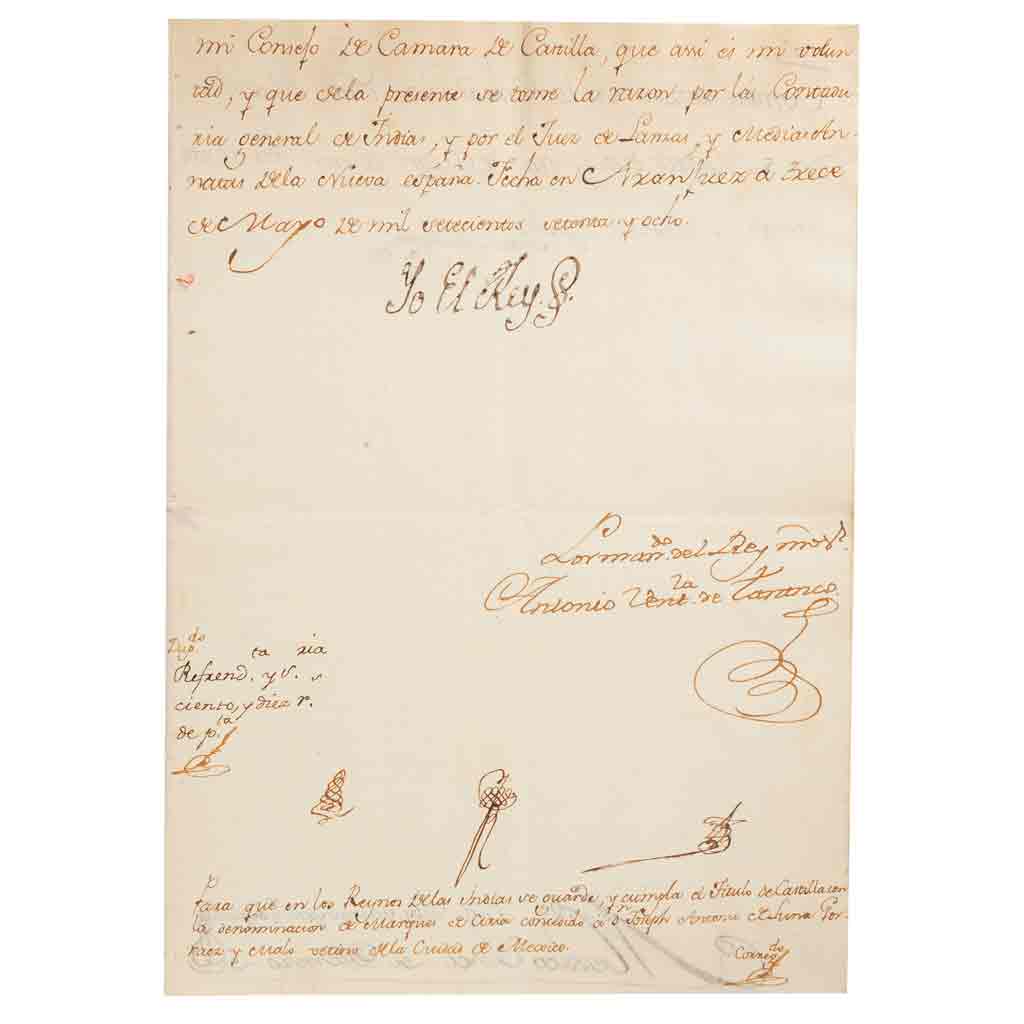 mi Consejo de Camara de Castilla, que assi es mi volun
tad, y que dela presente se tome la razon por la Contadu
ria general de Indias, y por el Juez de Lanzas, y Medias An
natas dela Nueva españa. Fecha en Aranjuez à trece
de Mayo de mil setecientos setenta y ocho.
Yo El Rey.
Por man.do del Rey nro s.r
Antonio Vent.ra de Taranco
Dup.do
Refrend.ta y s.ria
ciento, y diez r.s
de p.ta
Para que en los Reynos delas Indias se guarde, y cumpla el Titulo de Castilla con
la denominacion de Marques de Ciria concedido à d.n Joseph Antonio de Luna Gor-
raez y Malo vecino dela Ciudad de Mexico.
Correg.do